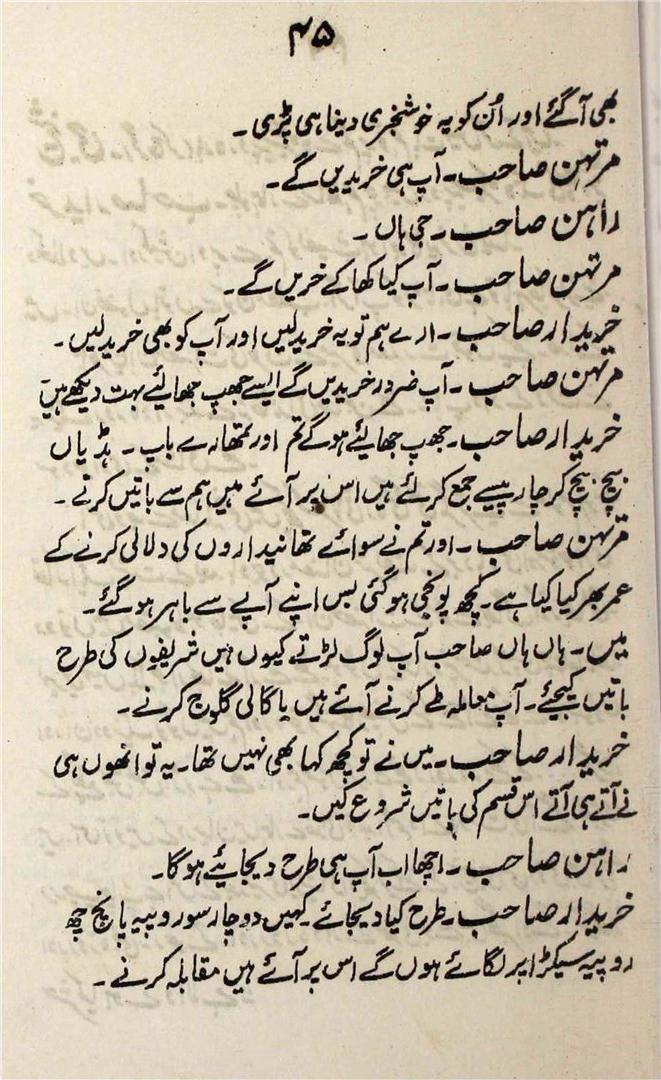 ۴۵
بھی آگئے اور اُن کو یہ خوشخبری دینا ہی پڑی۔
مرتہن صاحب۔ آپ ہی خریدیں گے۔
راہن صاحب۔ جی ہاں۔
مرتہن صاحب۔ آپ کیا کھا کے خریں گے۔
خریدار صاحب۔ ارے ہم تو یہ خریدلیں اور آپ کو بھی خریدلیں۔
مرتہن صاحب۔ آپ ضرور خریدیں گے ایسے جھپ جھائیے بہت دیکھے ہیں
خریدار صاحب۔ جھپ جھائیے ہوگے تم اور تمھارے باپ۔ ہڈیاں
بیچ بیچ کر چار پیسے جمع کرلئے ہیں اس پر آئے ہیں ہم سے باتیں کرنے۔
مرتہن صاحب۔ اور تم نے سوائے تھانیداروں کی دلالی کرنے کے
عمر بھر کیا کیا ہے۔ کچھ پونجی ہوگئی بس اپنے آپے سے باہر ہوگئے۔
میں۔ ہاں ہاں صاحب آپ لوگ لڑتے کیوں ہیں شریفوں کی طرح
باتیں کیجئے۔ آپ معاملہ طے کرنے آئے ہیں یا گالی گلوج کرنے۔
خریدار صاحب۔ میں نے تو کچھ کہا بھی نہیں تھا۔ یہ تو انھوں ہی
نے آتے ہی آتے اس قسم کی باتیں شروع کیں۔
راہن صاحب۔ اچھا اب آپ ہی طرح دیجائیے ہوگا۔
خریدار صاحب۔ طرح کیا دیجائے۔ کہیں دو چار سو روپیہ پانچ چھ
روپیہ سیکڑا پر لگائے ہوں گے اس پر آئے ہیں مقابلہ کرنے۔